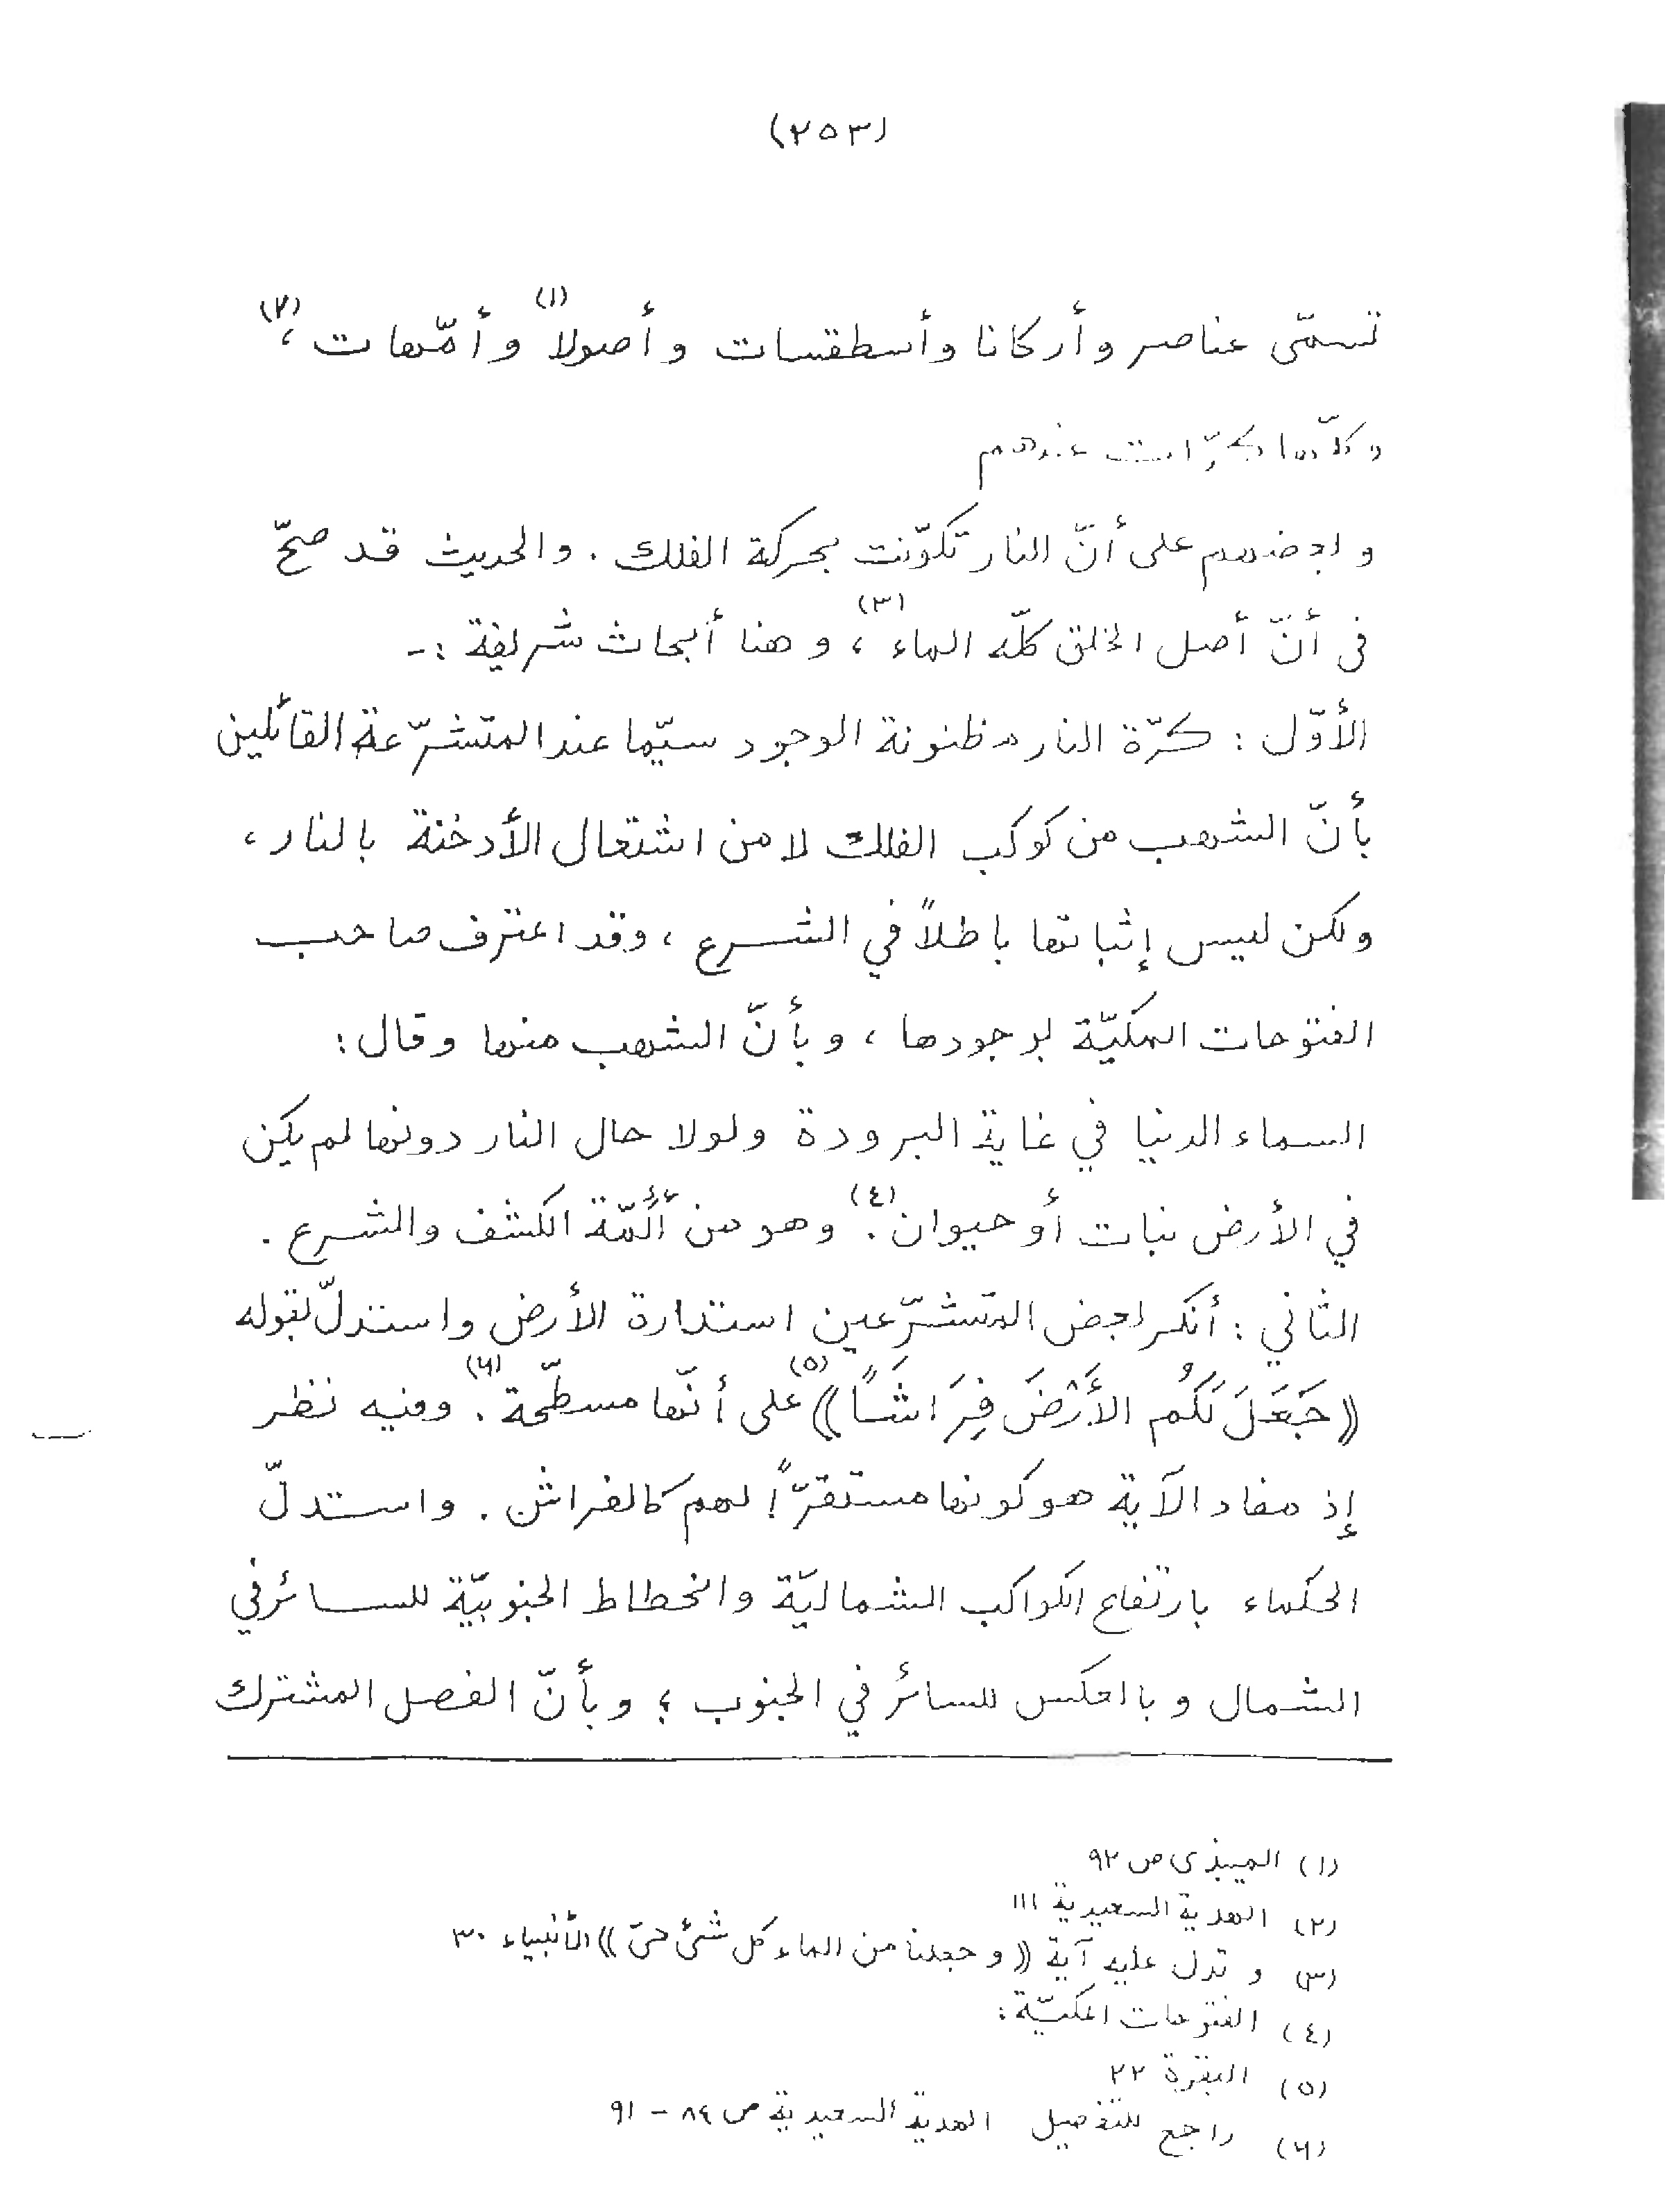 (٢٥٣)
تسمّى عناصر وأركانا وأسطقسات وأصولا(١) وأمّهات،(٢)
وكلّها كرّات عندهم
وبعضهم على أنّ النار تكوّنت بحركة الفلك. والحديث قد صحّ
فى أنّ أصل الخلق كلّه الماء(٣)، وهنا أبحاث شريفة :-
الأوّل : كرّة النار مظنونة الوجود سيّما عند المتشرّعة القائلين
بأنّ الشهب من كوكب الفلك لا من اشتعال الأدخنة بالنار،
ولكن ليس إثباتها باطلاً في الشرع، وقد اعترف صاحب
الفتوحات المكيّة بوجودها، وبأنّ الشهب منها وقال:
السماء الدنيا في غاية البرودة ولولا حال النار دونها لم يكن
في الأرض نبات أو حيوان(٤). وهو من أئمّة الكشف والشرع.
الثاني : أنكر بعض المتشرّعين استدارة الأرض واستدلّ بقوله
((جَعَلَ لَكُم الأَرْضَ فِرَاشَاً))(٥) على أنّها مسطّحة(٦). وفيه نظر
إذ مفاد الآية هو كونها مستقرّاً لهم كالفراش. واستدلّ
الحكماء بارتفاع الكواكب الشماليّة وانحطاط الجنوبيّة للسائر في
الشمال وبالعكس للسائر في الجنوب؛ وبأنّ الفصل المشترك
(١) الميبذى ص ٩٢
(٢) الهدية السعيدية ١١١
(٣) وتدل عليه آية ((وجعلنا من الماء كل شئ حىّ)) الأنبياء ٣٠
(٤) الفتوحات المكيّة:
(٥) البقرة ٢٢
(٦) راجع للتفصيل الهدية السعيدية ص ٨٤ - ٩١